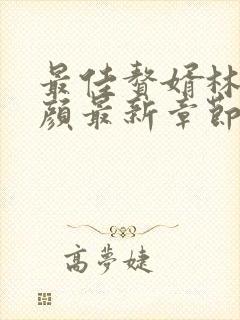 最佳贅婿林
顏最新章節
高夢婕